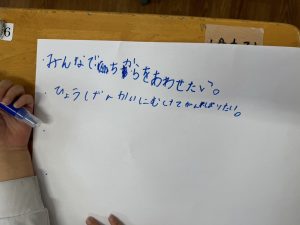 ・みんなでちからをあわせたい。
・ひょうしげんかいにむけてがんばりたい。
6